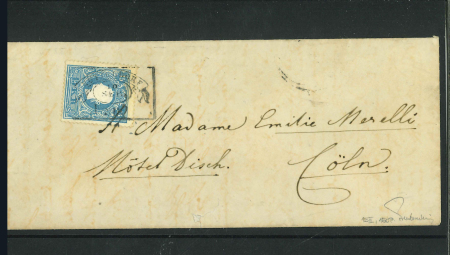 A Madame Emilie Merelli
Hôtel Disch.
Cöln.